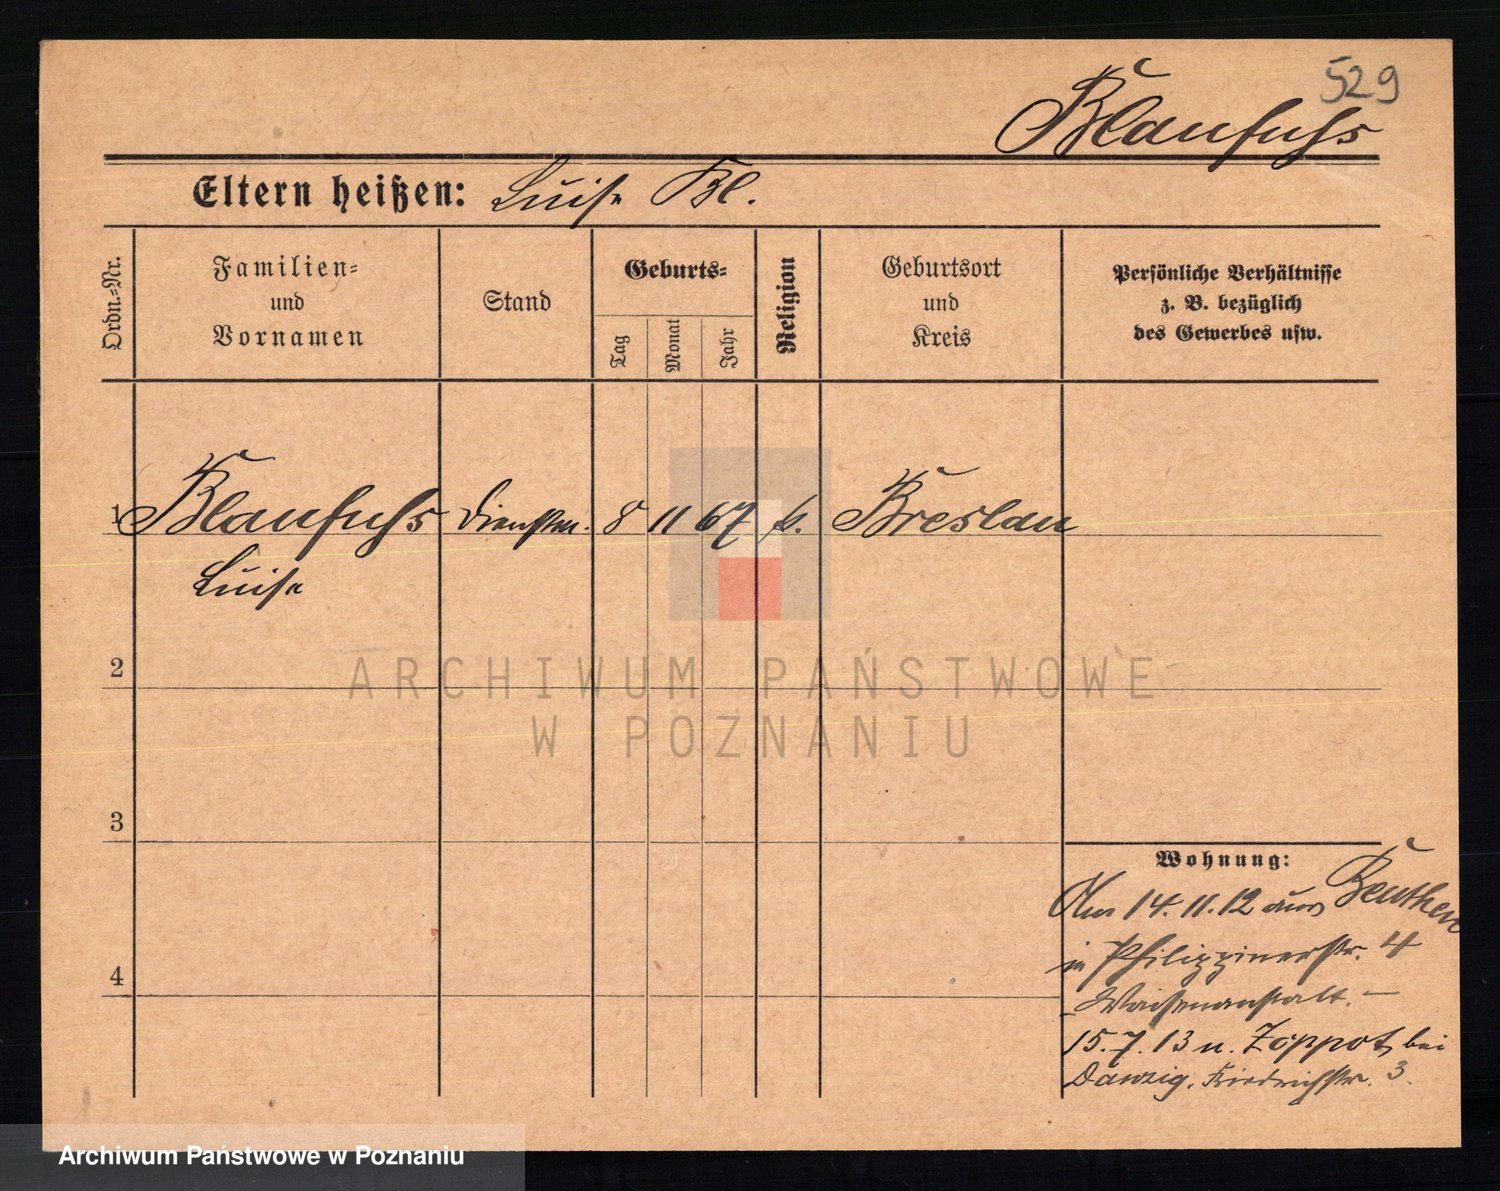 529
Blaufuhs
Eltern heißen: Luise Bl.
Ordn.-Nr.
Familien-
und
Vornamen
Stand
Geburts-
Tag
Monat
Jahr
Religion
Geburtsort
und
Kreis
Persönliche Verhältnisse
z. B. bezüglich
des Gewerbes usw.
1 Blaufuhs 8 11 67 Breslau
Luise
2
3
4
Wohnung:
14.11.12 aus Beuthen
in Philippinerstr. 4
Waisenanstalt. —
15.7.13 n. Zoppot, bei
Danzig, Friedrichstr. 3.
ARCHIWUM PAŃSTWOWE
W POZNANIU
Archiwum Państwowe w Poznaniu